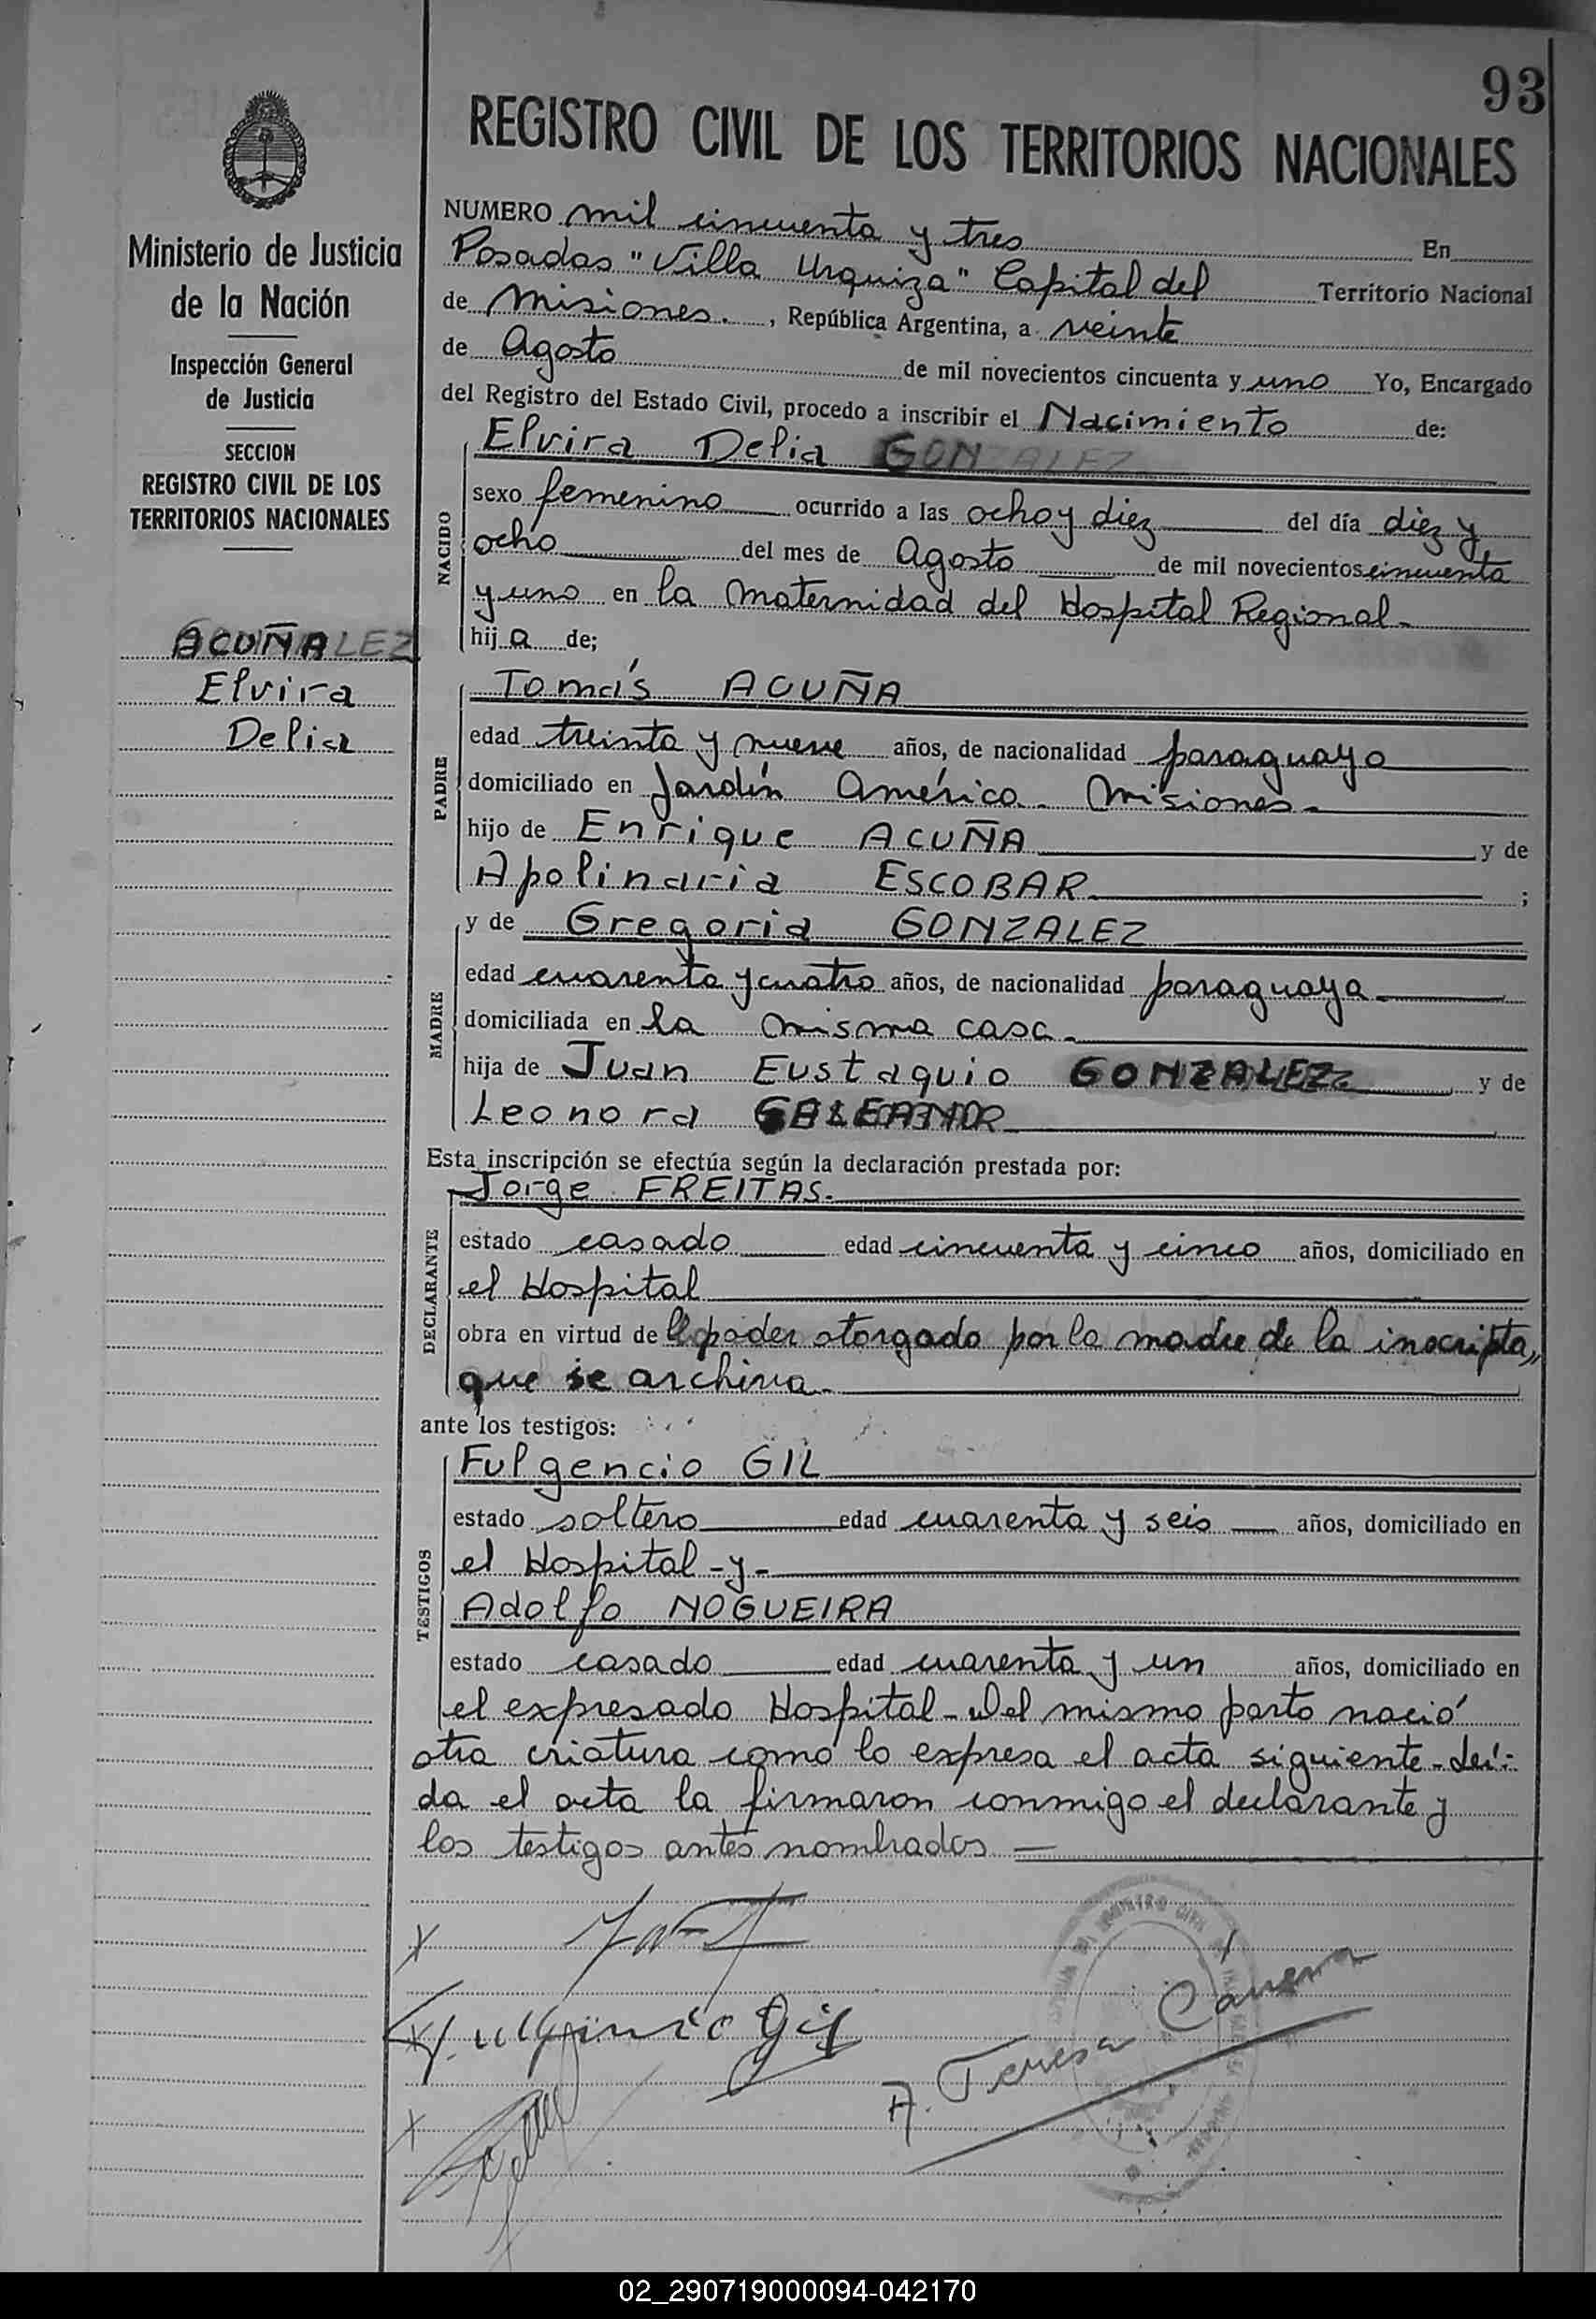 93
REGISTRO CIVIL DE LOS TERRITORIOS NACIONALES
Ministerio de Justicia
de la Nación
Inspección General
de Justicia
SECCION
REGISTRO CIVIL DE LOS
TERRITORIOS NACIONALES
ACUÑA LEZ
Elvira
Delia
NUMERO mil cincuenta y tres En
Posadas "Villa Urquiza" Capital del Territorio Nacional
de Misiones. , República Argentina, a veinte
de Agosto de mil novecientos cincuenta y uno Yo, Encargado
del Registro del Estado Civil, procedo a inscribir el Nacimiento de:
NACIDO
Elvira Delia GONZALEZ
sexo femenino ocurrido a las ocho y diez del día diez y
ocho del mes de Agosto de mil novecientos cincuenta
y uno en la Maternidad del Hospital Regional-
hij a de;
PADRE
Tomás ACUÑA
edad treinta y nueve años, de nacionalidad paraguayo
domiciliado en Jardín América - Misiones-
hijo de Enrique ACUÑA y de
Apolinaria ESCOBAR ;
MADRE
y de Gregoria GONZALEZ
edad cuarenta y cuatro años, de nacionalidad paraguaya-
domiciliada en la misma casa-
hija de Juan Eustaquio GONZALEZ y de
Leonora
Esta inscripción se efectúa según la declaración prestada por:
DECLARANTE
Jorge FREITAS-
estado casado edad cincuenta y cinco años, domiciliado en
el Hospital
obra en virtud de el poder otorgado por la madre de la inscripta,,
que se archiva-
ante los testigos:
TESTIGOS
Fulgencio GIL
estado soltero edad cuarenta y seis años, domiciliado en
el Hospital - y -
Adolfo NOGUEIRA
estado casado edad cuarenta y un años, domiciliado en
el expresado Hospital - Del mismo parto nació
otra criatura como lo expresa el acta siguiente - Leí-
da el acta la firmaron conmigo el declarante y
los testigos antes nombrados
Fulgencio Gil
A. Teresa Cánepa
02_290719000094-042170